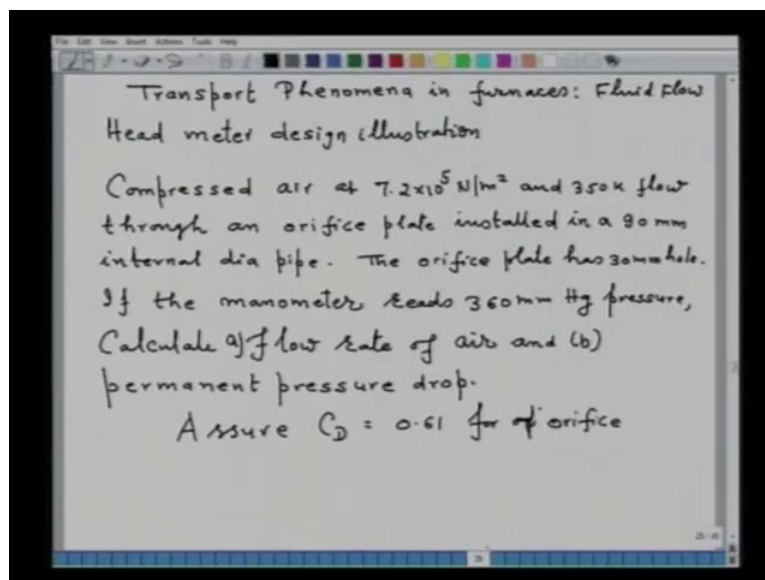 File Edit View Insert Actions Tools Help
Transport Phenomena in furnaces: Fluid Flow
Head meter design illustration
Compressed air at 7.2x10⁵ N/m² and 350K flow
through an orifice plate installed in a 90 mm
internal dia pipe. The orifice plate has 30mm hole.
If the manometer reads 360mm Hg pressure,
Calculate a) flow rate of air and (b)
permanent pressure drop.
Assure C_D = 0.61 for orifice